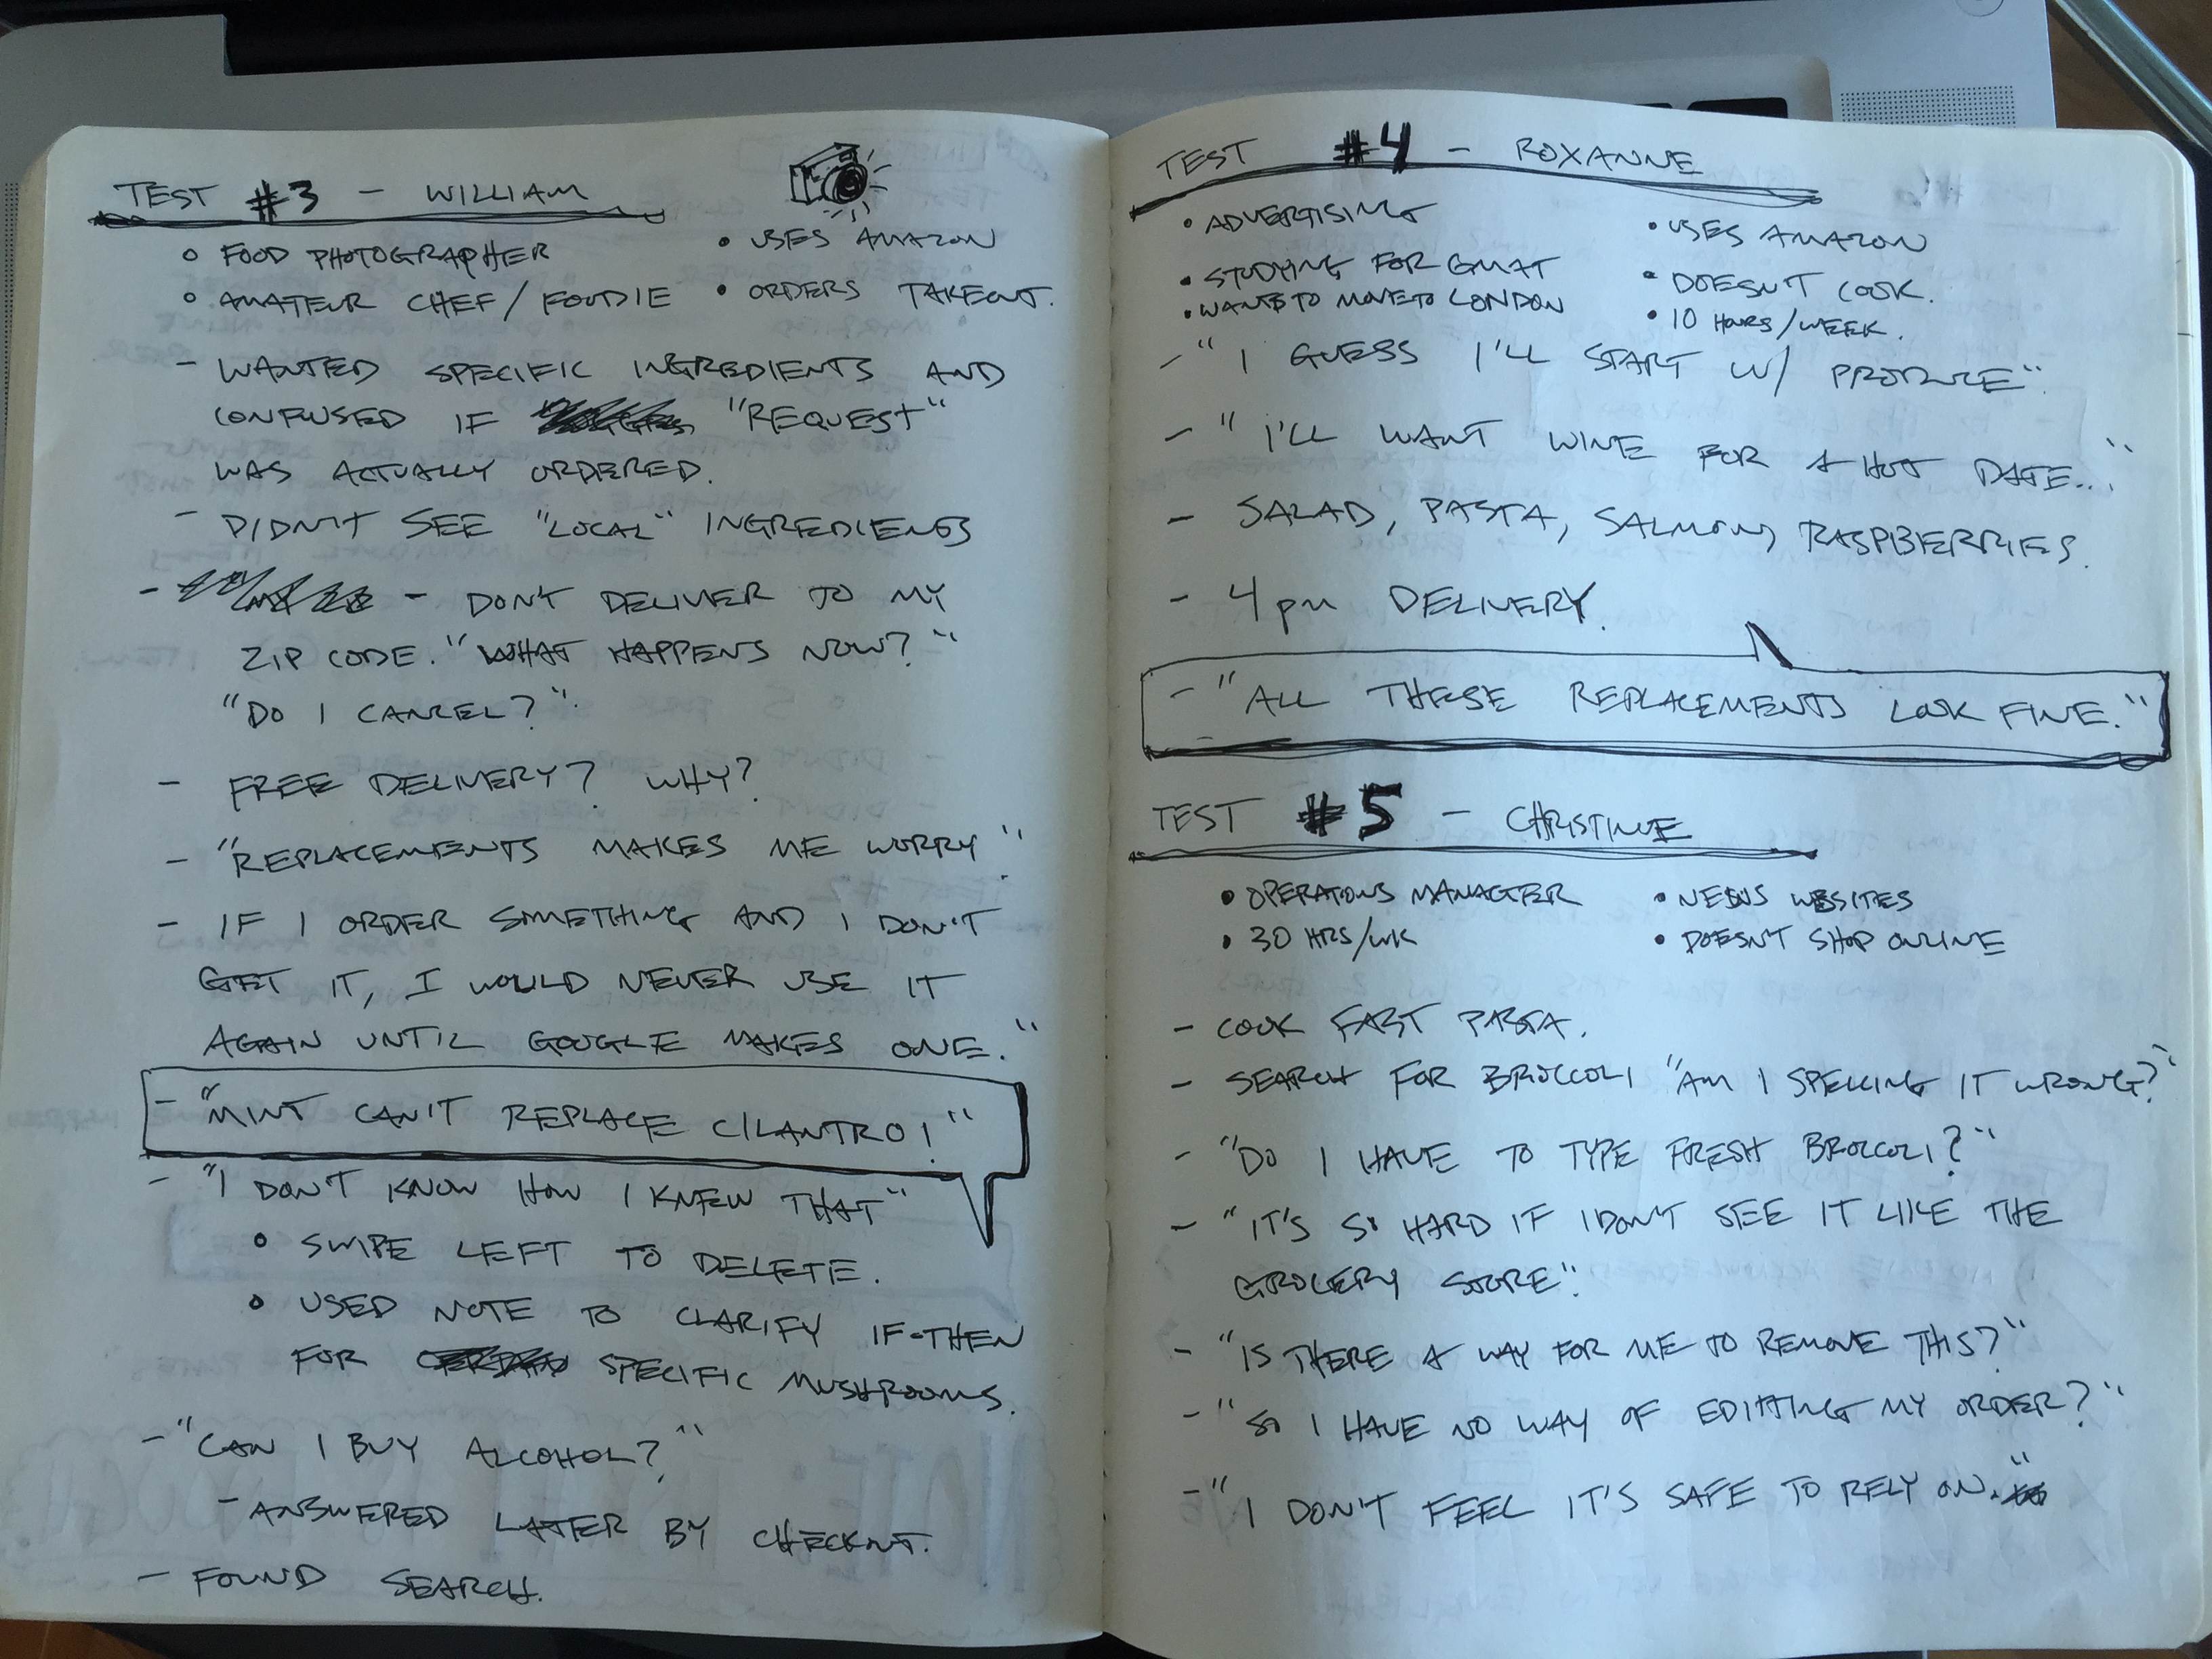 TEST #3 - WILLIAM
• FOOD PHOTOGRAPHER • USES AMAZON
• AMATEUR CHEF / FOODIE • ORDERS TAKEOUT.
- WANTED SPECIFIC INGREDIENTS AND
CONFUSED IF "REQUEST"
WAS ACTUALLY ORDERED.
- DIDN'T SEE "LOCAL" INGREDIENTS
- DON'T DELIVER TO MY
ZIP CODE. "WHAT HAPPENS NOW?"
"DO I CANCEL?"
- FREE DELIVERY? WHY?
- "REPLACEMENTS MAKES ME WORRY"
- IF I ORDER SOMETHING AND I DON'T
GET IT, I WOULD NEVER USE IT
AGAIN UNTIL GOOGLE MAKES ONE."
- "MINT CAN'T REPLACE CILANTRO!"
- "I DON'T KNOW HOW I KNEW THAT"
• SWIPE LEFT TO DELETE.
• USED NOTE TO CLARIFY IF-THEN
FOR SPECIFIC MUSHROOMS.
- "CAN I BUY ALCOHOL?"
- ANSWERED LATER BY CHECKING.
- FOUND SEARCH.
TEST #4 - ROXANNE
• ADVERTISING • USES AMAZON
• STUDYING FOR GMAT • DOESN'T COOK.
• WANTS TO MOVE TO LONDON • 10 HOURS/WEEK.
- "I GUESS I'LL START W/ PRODUCE"
- "I'LL WANT WINE FOR A HOT DATE..."
- SALAD, PASTA, SALMON, RASPBERRIES.
- 4PM DELIVERY
- "ALL THESE REPLACEMENTS LOOK FINE."
TEST #5 - CHRISTINE
• OPERATIONS MANAGER • NEWS WEBSITES
• 30 HRS/WK • DOESN'T SHOP ONLINE
- COOK FAST PASTA.
- SEARCH FOR BROCCOLI "AM I SPELLING IT WRONG?"
- "DO I HAVE TO TYPE FRESH BROCCOLI?"
- "IT'S SO HARD IF I DON'T SEE IT LIKE THE
GROCERY STORE."
- "IS THERE A WAY FOR ME TO REMOVE THIS?"
- "SO I HAVE NO WAY OF EDITTING MY ORDER?"
- "I DON'T FEEL IT'S SAFE TO RELY ON."